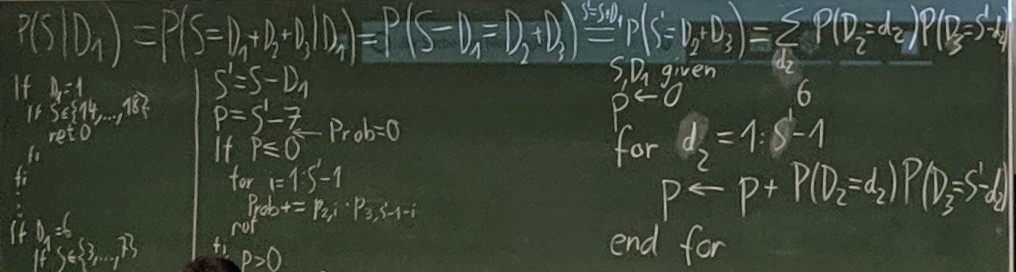 P(S|D₁) = P(S=D₁+D₂+D₃|D₁) = P(S-D₁=D₂+D₃) = P(S'=D₂+D₃) = Σ P(D₂=d₂)P(D₃=S'-d₂)
d₂
If D₁=1
If S∈{14,...,18}
ret 0
fi
fi
:
If D₁=6
If S∈{3,...,7}
S'=S-D₁
P=S'-7
← Prob=0
If P≤0
for i=1:S'-1
Prob+=P₂,i·P₃,S'-1-i
rof
fi
P>0
S,D₁ given
P←0
6
for d₂=1:S'-1
P←P+P(D₂=d₂)P(D₃=S'-d₂)
end for